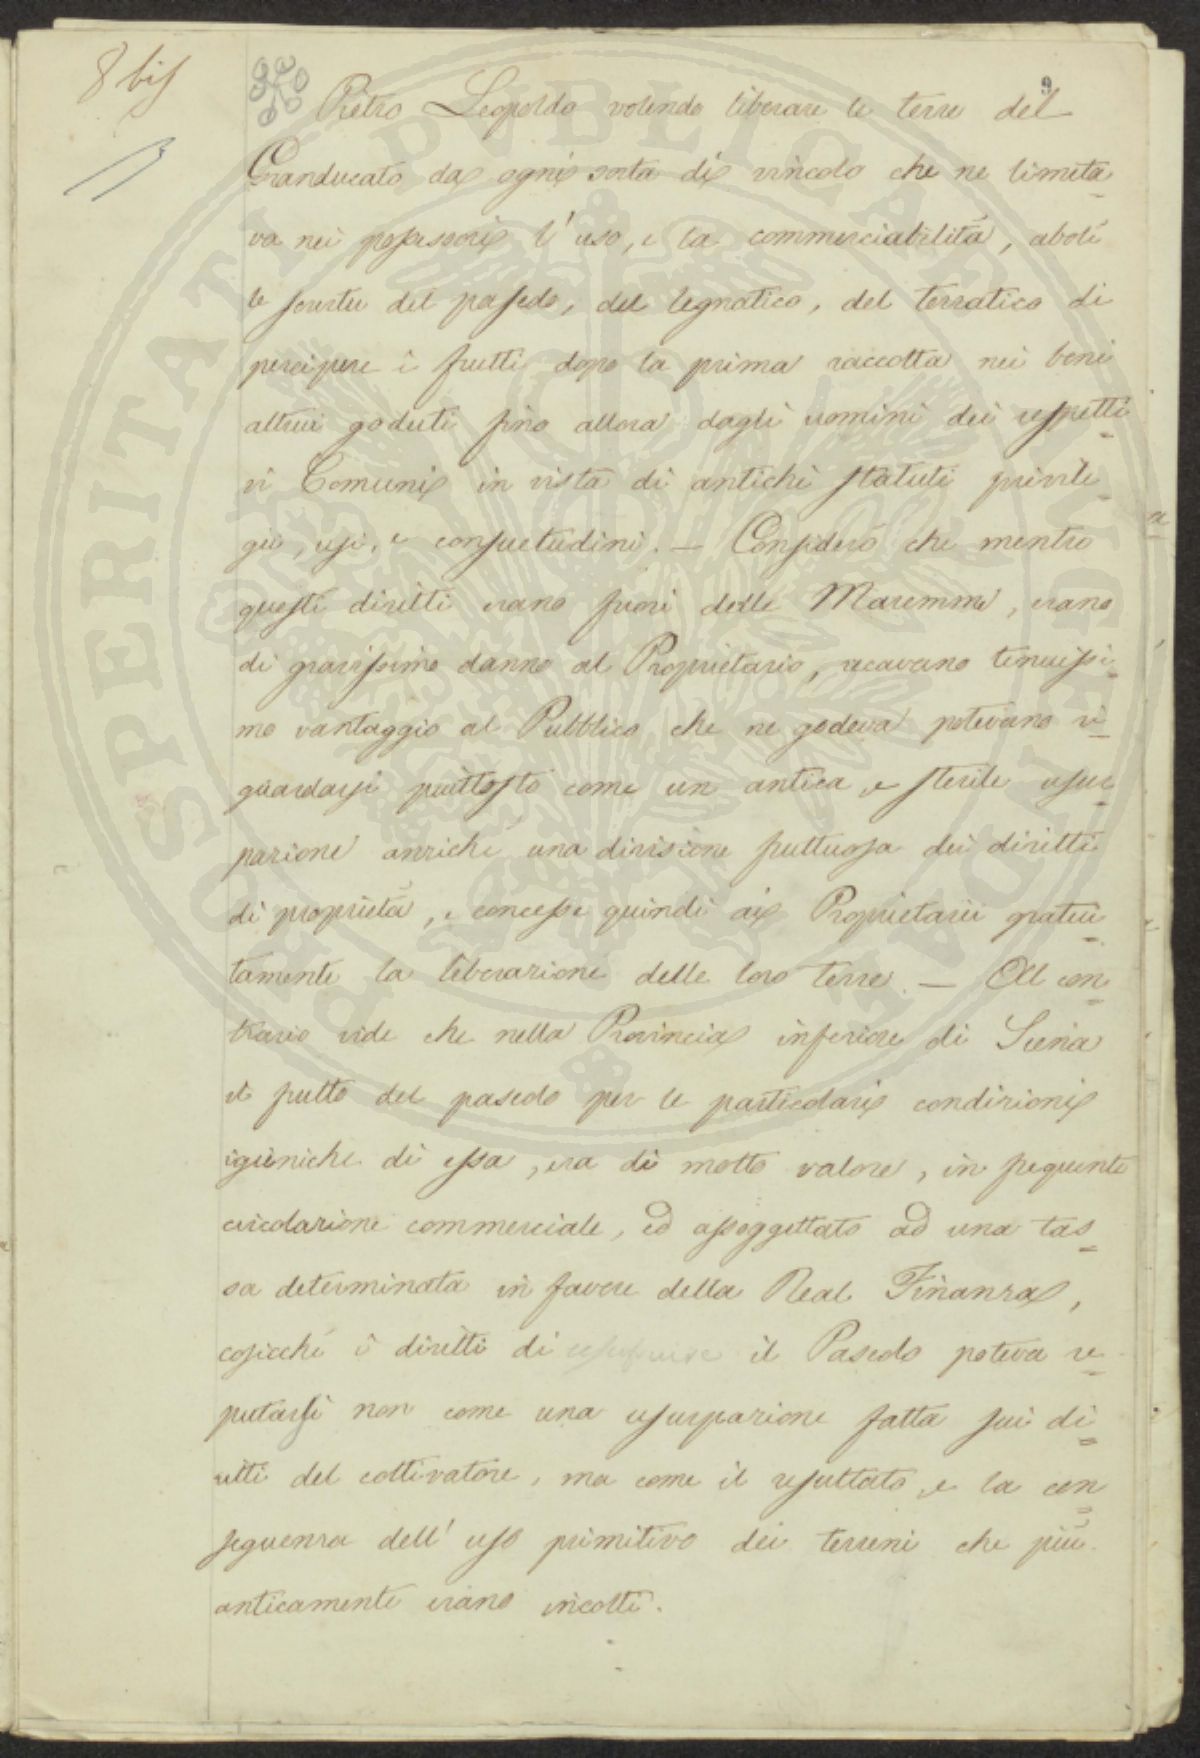 8 bis
9
Pietro Leopoldo volendo liberare le terre del
Granducato da ogni sorta di vincolo che ne limita-
va nei possessori l'uso, e la commerciabilità, abolì
le servitù del pascolo, del legnatico, del terratico di
percipere i frutti dopo la prima raccolta nei beni
altrui goduti fino allora dagli uomini dei respetti-
vi Comuni in vista di antichi statuti privile-
gii, usi, e consuetudini. — Considerò che mentre
questi diritti erano fuori delle Maremme, erano
di gravissimo danno al Proprietario, recavano tenuissi-
mo vantaggio al Pubblico che ne godeva potevano ri-
guardarsi piuttosto come un antica, e sterile usur-
pazione anziché una divisione fruttuosa dei diritti
di proprietà, e concesse quindi ai Proprietarii gratui-
tamente la liberazione delle loro terre. — Al con-
trario vide che nella Provincia inferiore di Siena
il frutto del pascolo per le particolari condizioni
igieniche di essa, era di molto valore, in frequente
circolazione commerciale, ed assoggettato ad una tas-
sa determinata in favore della Real Finanza,
cosicché i diritti di il Pascolo poteva re-
putarsi non come una usurpazione fatta sui di-
ritti del coltivatore, ma come il resultato, e la con-
seguenza dell'uso primitivo dei terreni che più
anticamente erano incolti.
PROSPERITATI PUBLICAE AUGENDAE